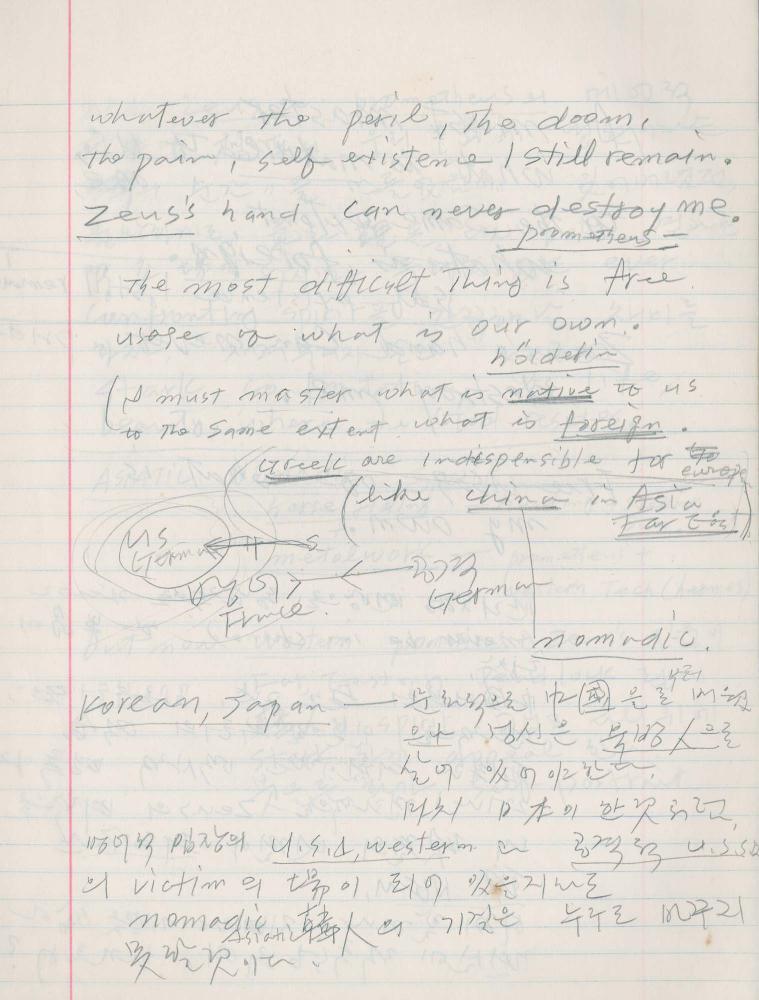 whatever the peril, The doom,
the pain, self existence I still remain.
Zeus's hand can never destroy me.
— prometheus —
The most difficult Thing is free
usage of what is our own.
hölderlin
(I must master what is native to us
to the same extent what is foreign.
Greek are indispensible for europe
(like china in Asia
Far East)
US
German
S
방어
France
공격
German
nomadic.
Korean, Japan — 으로 中國 을 부터 배웠
으나 정신은 북방人으로
살어 있어야 한다.
마치 日本이 한것처럼,
방어적 입장의 U.S.A, western 과 공격적 U.S.S.R
의 victim 의 場이 되어 있을지라도
nomadic Asiatic 韓人의 기질은 누구도 바꾸지
못할것이다.